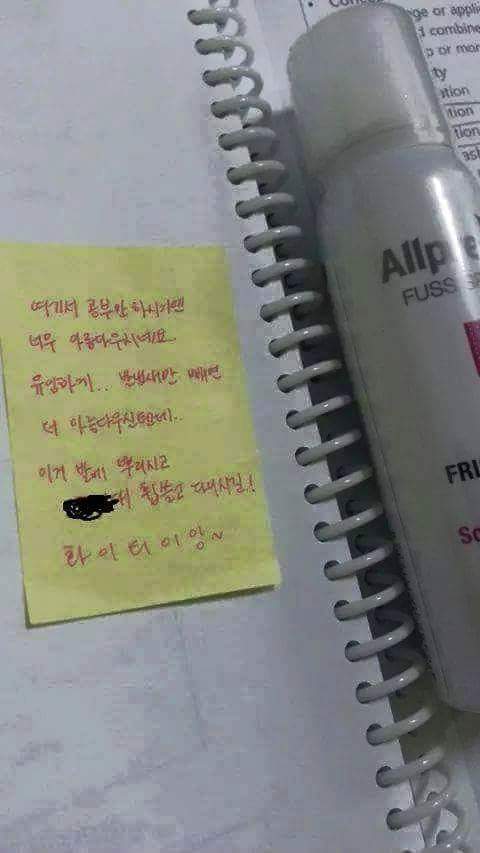 여기서 공부만 하시기엔
너무 아름다우시네요.
유일하게... 발냄새만 빼면
더 아름다우실텐데..
이거 발에 뿌리시고
서 휩쓸고 다니시길!
화이티이잉~
Allp
FUSS
FRI
ge or appli
combine
p or mor
ty
ation
tion
tion